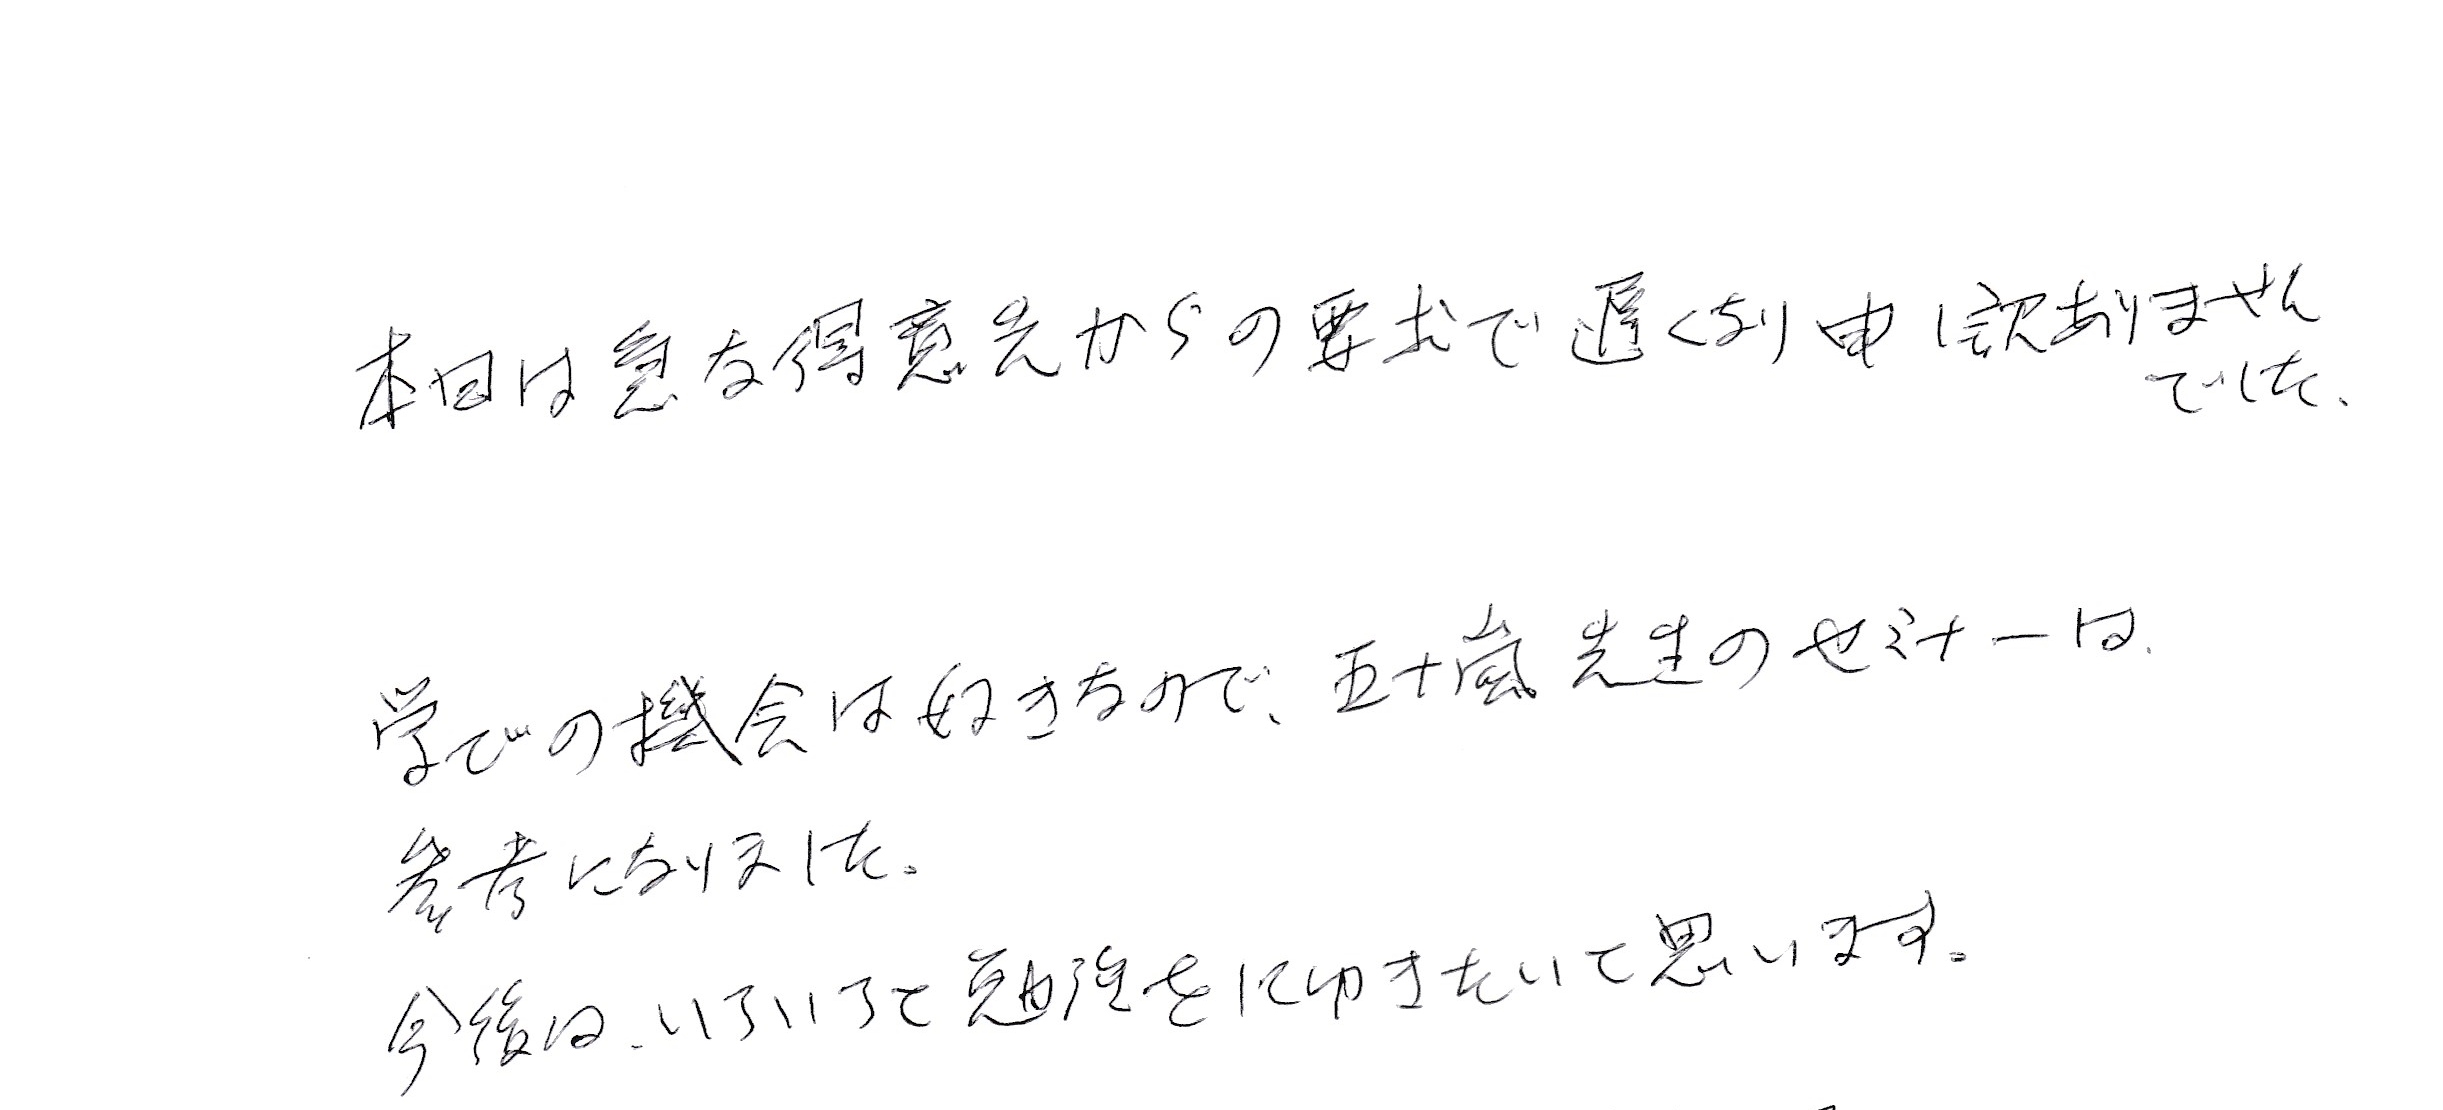 本日は急な得意先からの要求で遅くなり申し訳ありません
でした、
学びの機会は好きなので、五十嵐先生のセミナーは、
参考になりました。
今後は、いろいろと勉強をしてゆきたいと思います。